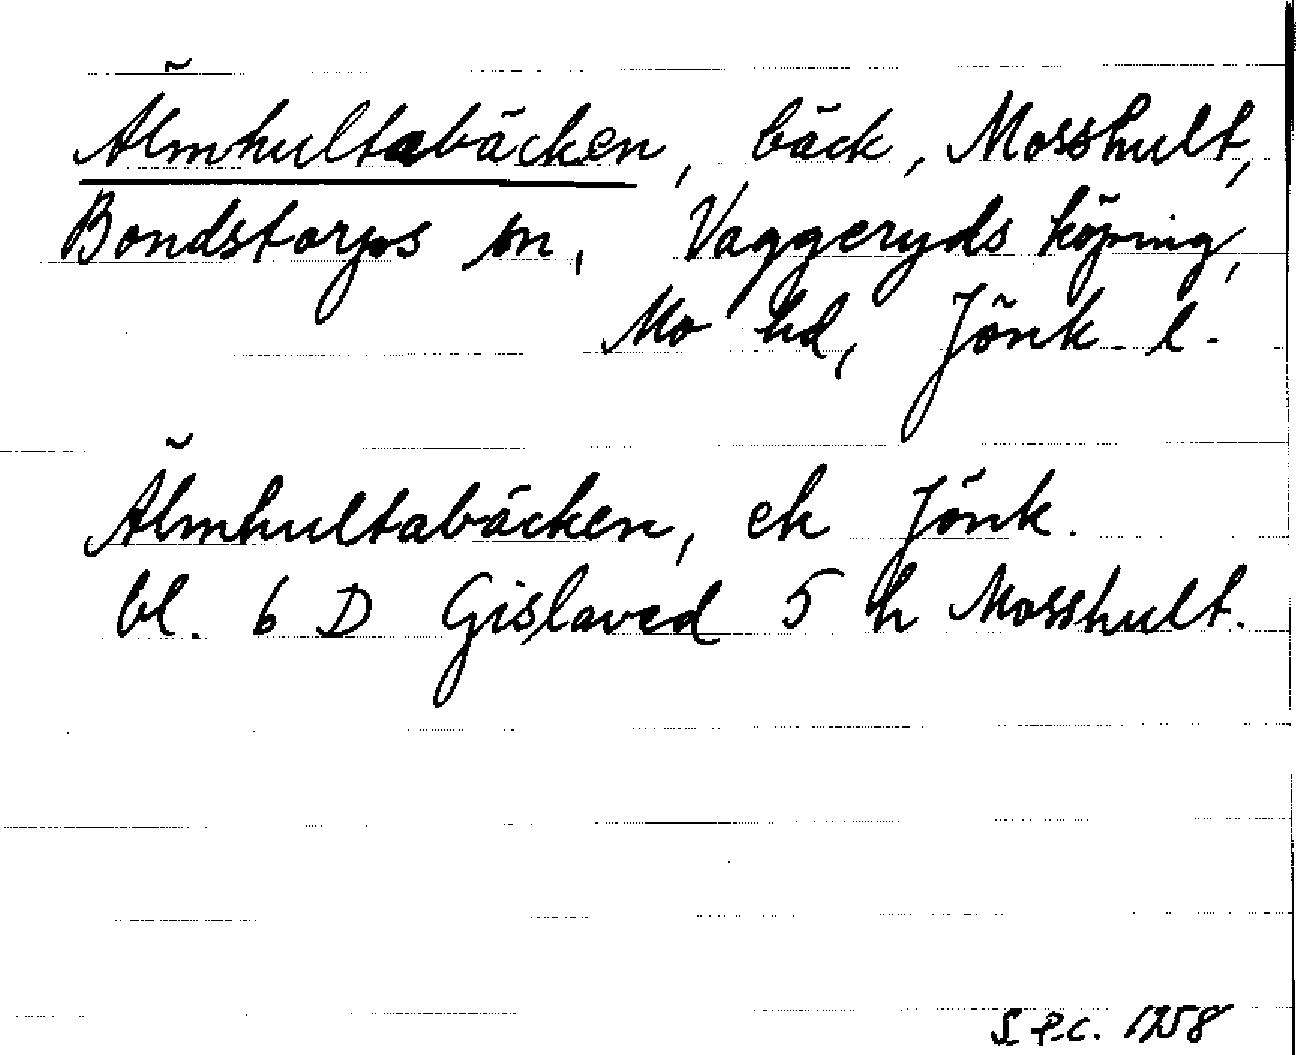 Älmhultabäcken, bäck, Mosshult,
Bondstorps sn, Vaggeryds köping,
Mo hd, Jönk. l.
Älmhultabäcken, ek Jönk.
bl. 6 D Gislaved 5 h Mosshult.
S. P.C. 1958